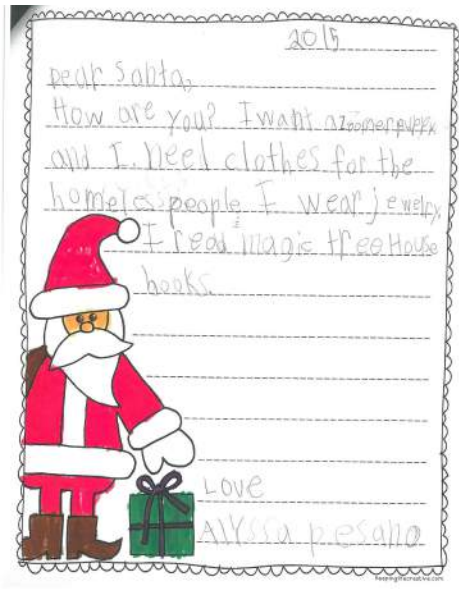 2015
Dear Santa,
How are you? I want a zoomer puppy
and I. need clothes for the
homeless people I wear jewelry.
I read magic tree House
books.
Love
Alyssa pesano
keepinglifecreative.com